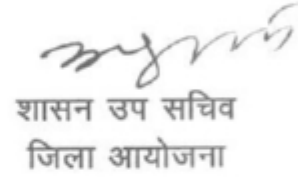 शासन उप सचिव
जिला आयोजना